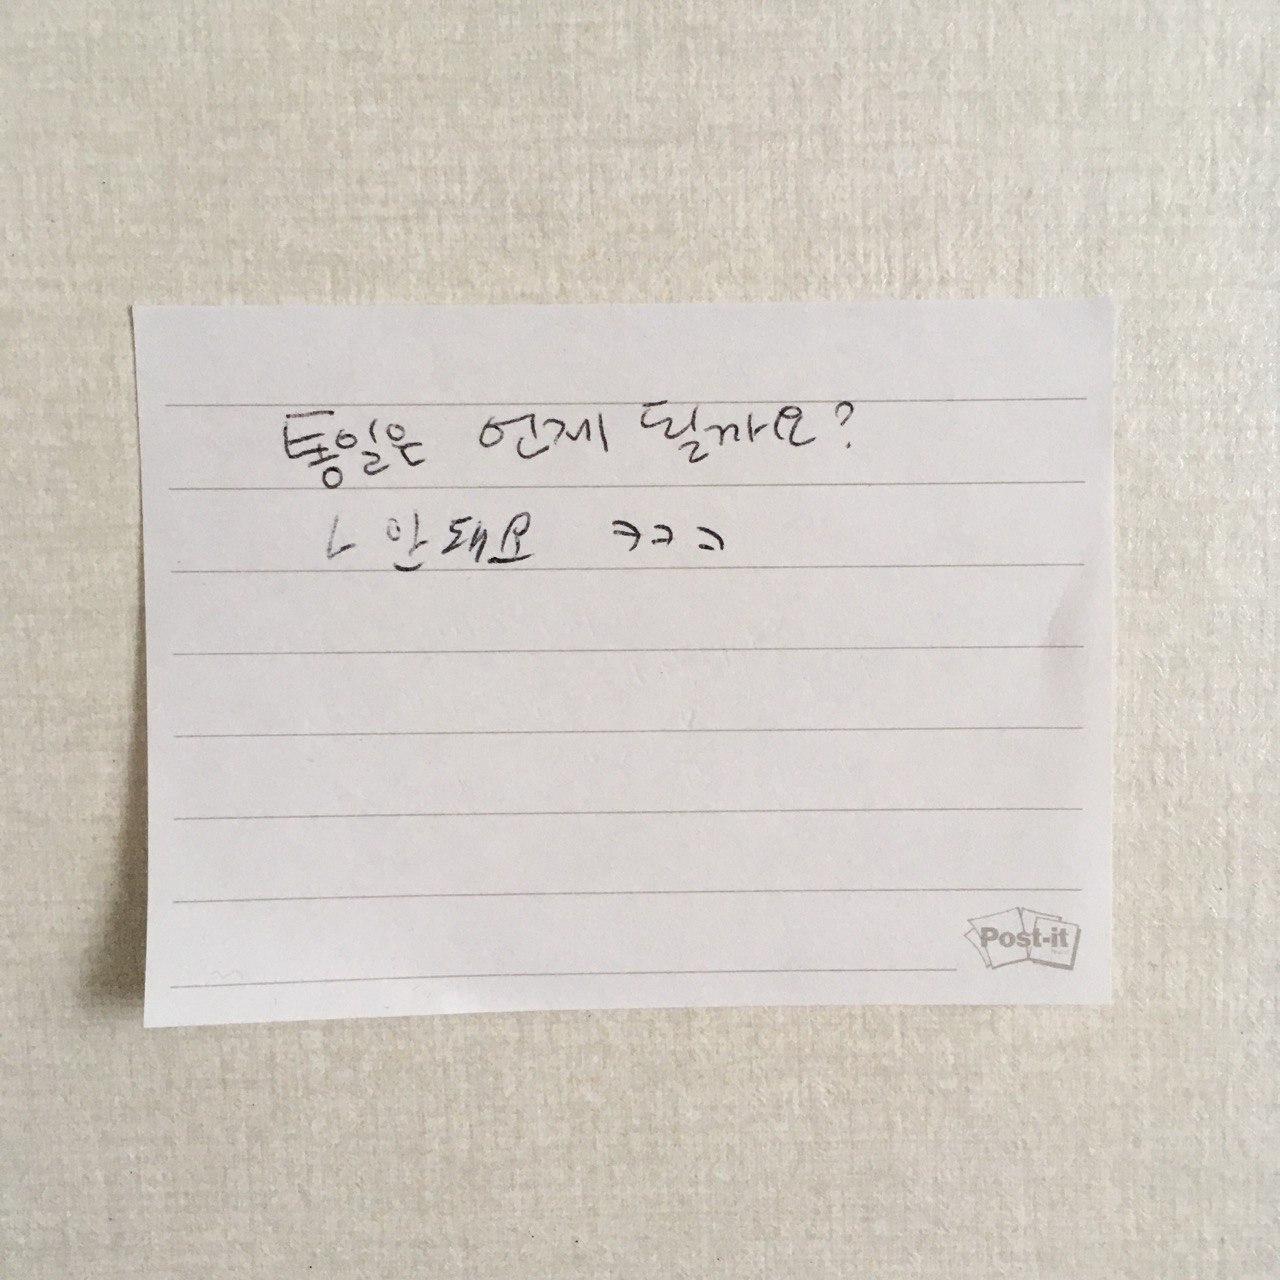 통일은 언제 될까요?
ㄴ 안돼요 ㅋㅋㅋ
Post-it